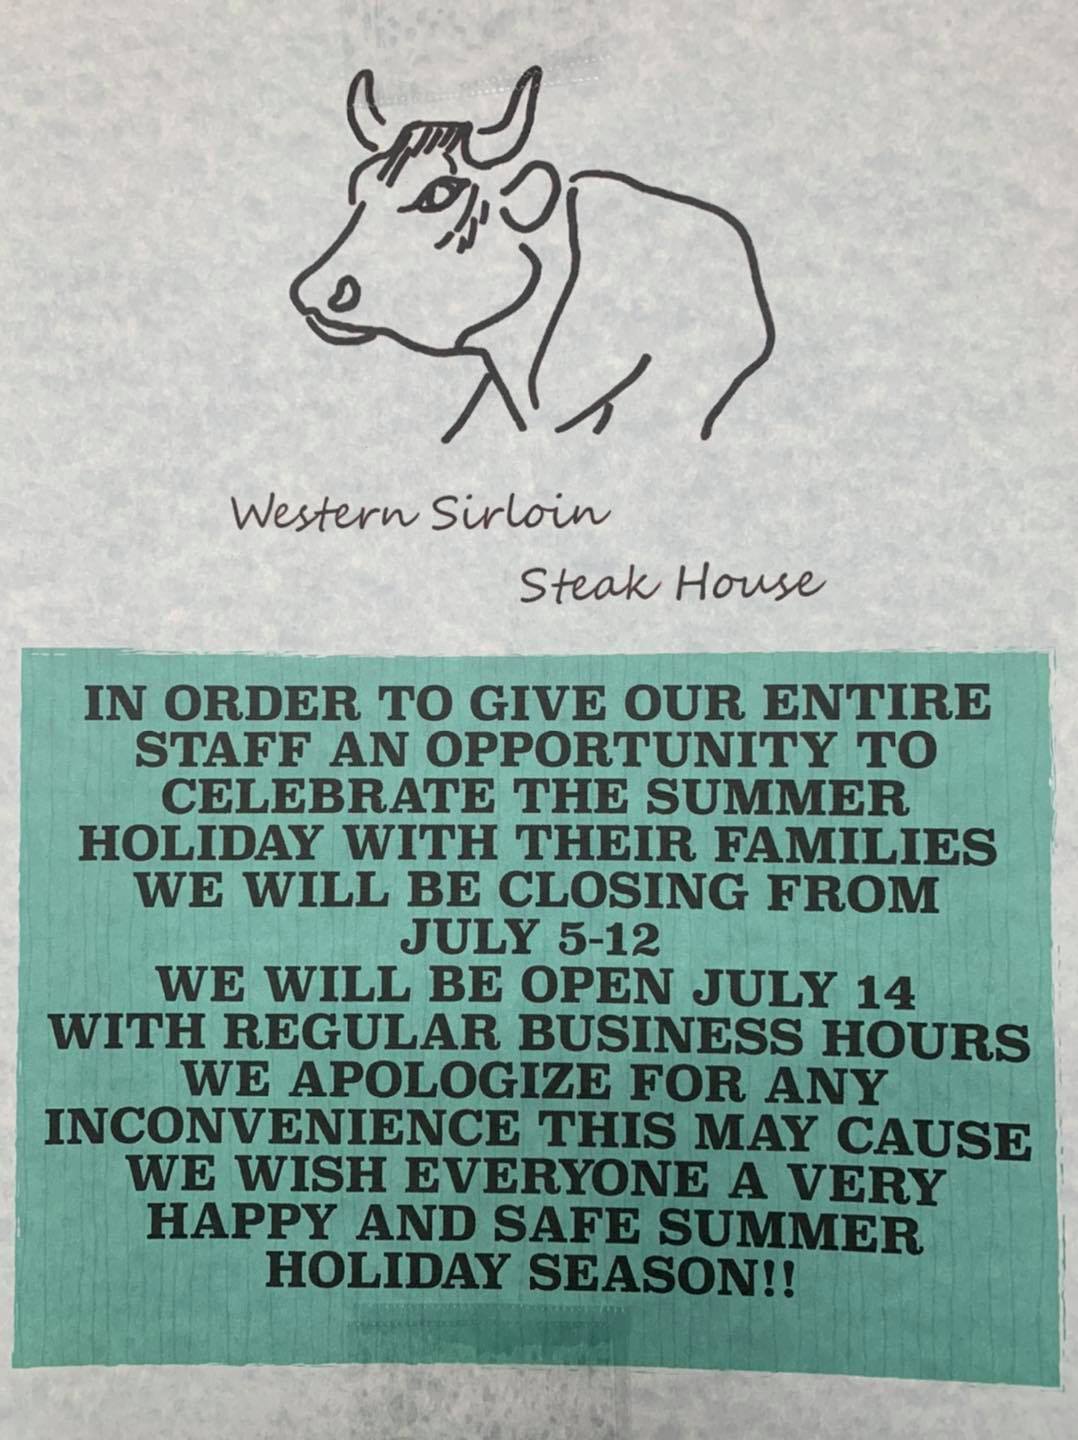 Western Sirloin
Steak House
IN ORDER TO GIVE OUR ENTIRE
STAFF AN OPPORTUNITY TO
CELEBRATE THE SUMMER
HOLIDAY WITH THEIR FAMILIES
WE WILL BE CLOSING FROM
JULY 5-12
WE WILL BE OPEN JULY 14
WITH REGULAR BUSINESS HOURS
WE APOLOGIZE FOR ANY
INCONVENIENCE THIS MAY CAUSE
WE WISH EVERYONE A VERY
HAPPY AND SAFE SUMMER
HOLIDAY SEASON!!